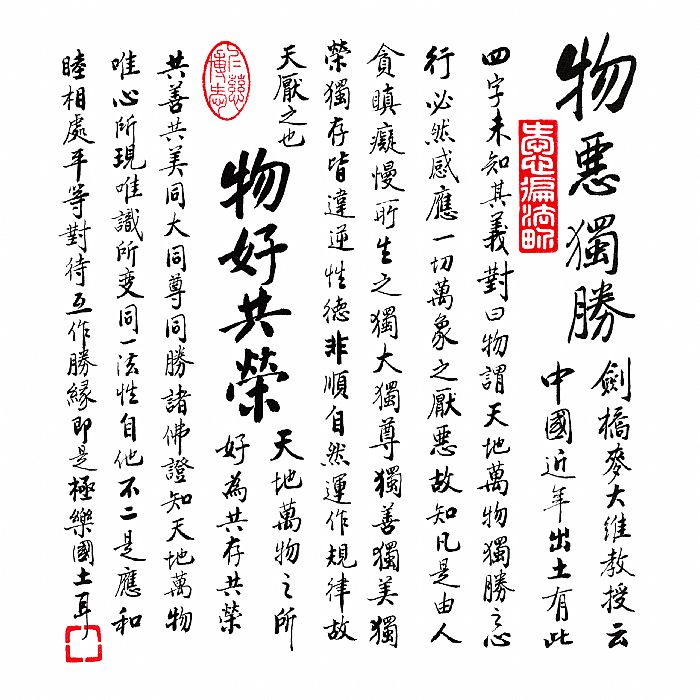 物惡獨勝
劍橋麥大維教授云
中國近年出土有此
四字未知其義對曰物謂天地萬物獨勝之心
行必然感應一切萬象之厭惡故知凡是由人
貪瞋癡慢所生之獨大獨尊獨善獨美獨
榮獨存皆違逆性德非順自然運作規律故
天厭之也
仁慈博愛
物好共榮
天地萬物之所
好為共存共榮
共善共美同大同尊同勝諸佛證知天地萬物
唯心所現唯識所变同一法性自他不二是應和
睦相處平等對待互作勝緣即是極樂國土耳